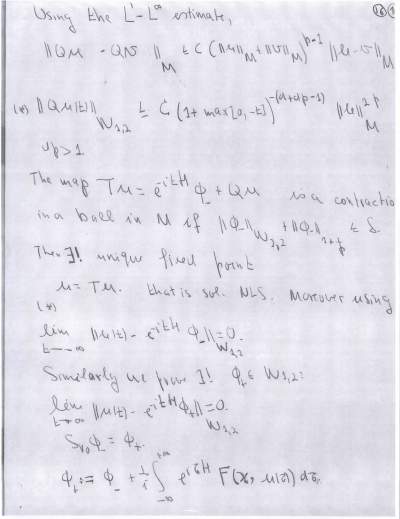 Using the L¹-L^∞ estimate,
||Qu - Qv||_M ≤ C (||u||_M + ||v||_M)^{p-1} ||u-v||_M
(*) ||Qu(t)||_{W_{1,2}} ≤ C (1+ max[0,-t])^{-(d+dp-1)} ||u||_M^p
p>1
The map Tu = e^{-itH} φ_- + Qu is a contractio
in a ball in M if ||φ_-||_{W_{2,2}} + ||φ_-||_{1+1/p} ≤ δ.
Then ∃! unique fixed point
u = Tu. that is sol. NLS. Moreover using
(*)
lim_{t→-∞} ||u(t) - e^{-itH} φ_-||_{W_{1,2}} = 0.
Similarly we prove ∃! φ_+ ∈ W_{1,2}:
lim_{t→∞} ||u(t) - e^{-itH} φ_+||_{W_{1,2}} = 0.
S_{V_0} φ_- = φ_+.
φ_+ := φ_- + 1/i ∫_{-∞}^{+∞} e^{iτH} F(x, u(τ)) dτ.